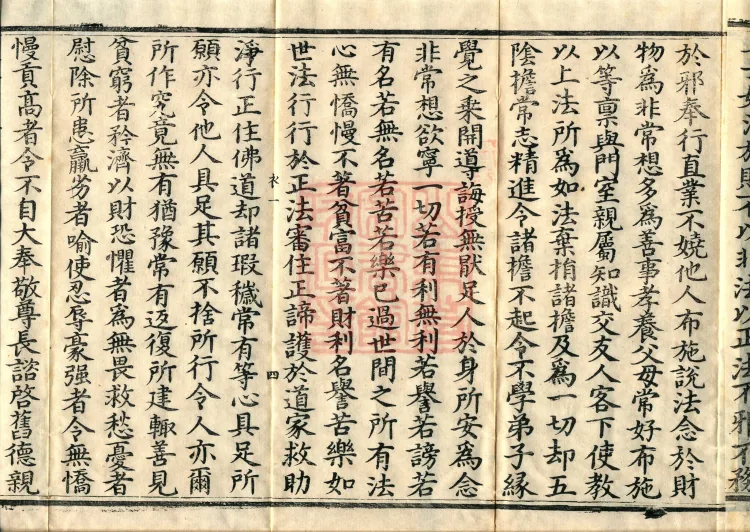 於邪奉行直業不嬈他人布施說法念於財
物為非常想多為善事孝養父母常好布施
以等稟與門室親屬知識交友人客下使教
以上法所為如法棄捐諸擔及為一切却五
陰擔常志精進令諸擔不起令不學弟子緣
覺之乘開導誨授無猒足人於身所安為念
非常想欲寧一切若有利無利若譽若謗若
有名若無名若苦若樂已過世間之所有法
心無憍慢不著貧富不著財利名譽苦樂如
世法行行於正法審住正諦護於道家救助
衣一
四
淨行正住佛道却諸瑕穢常有等心具足所
願亦令他人具足其願不捨所行令人亦爾
所作究竟無有猶豫常有返復所建輙善見
貧窮者矜濟以財恐懼者為無畏救愁憂者
慰除所患羸劣者喻使忍辱豪强者令無憍
慢貢高者令不自大奉敬尊長諮啓舊德親